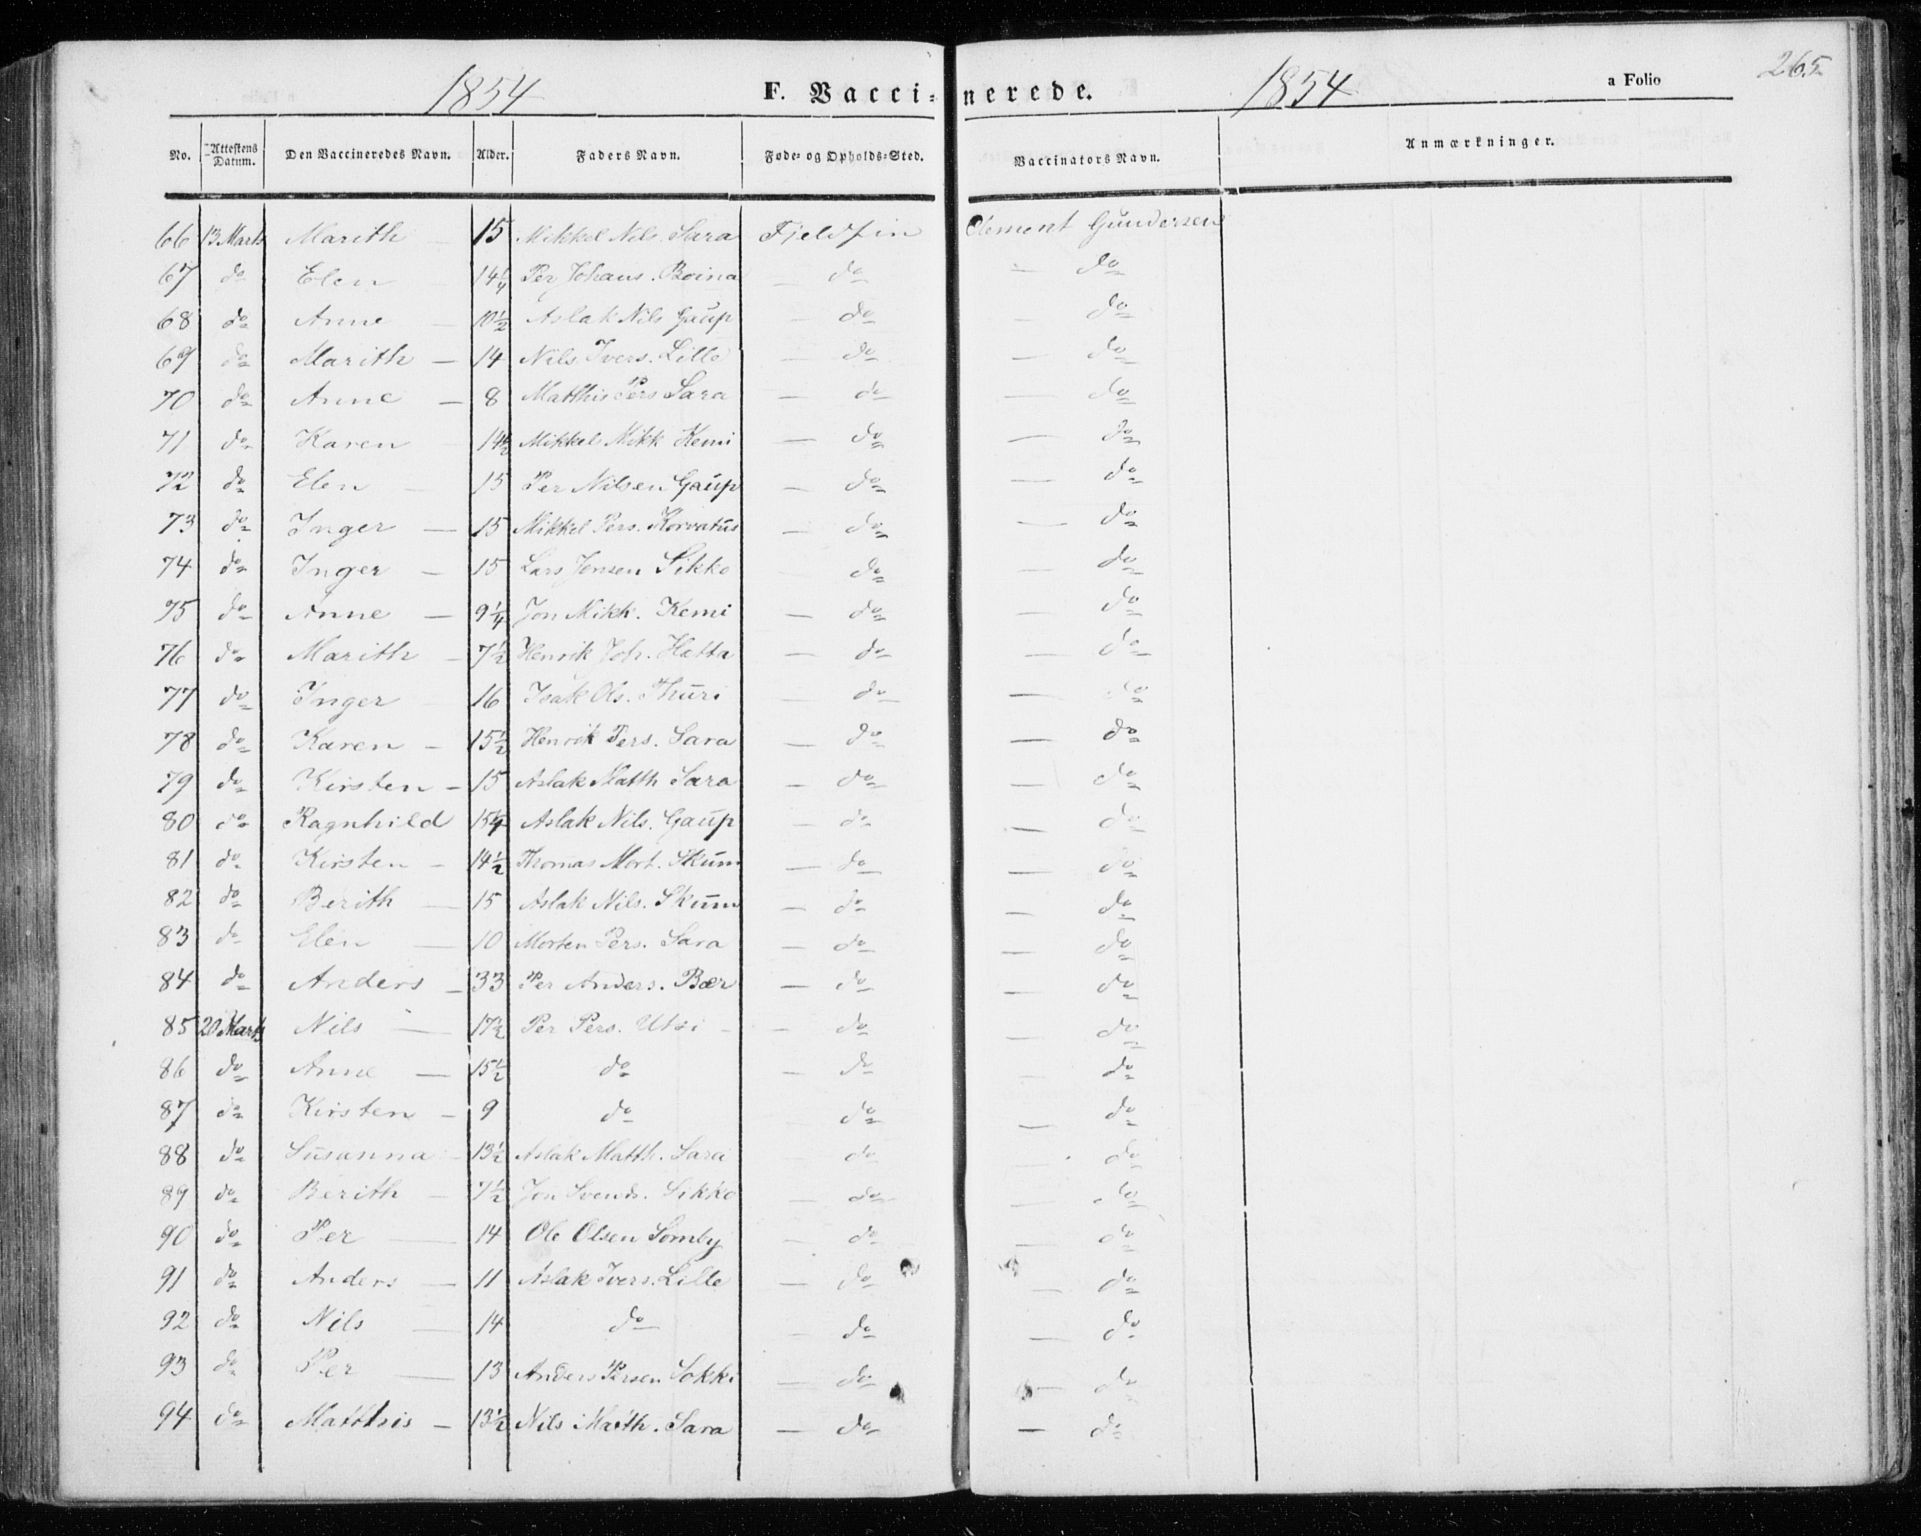 1854 F. Vaccinerede. 1854 a Folio 265
No. Attestens Datum. Den Vaccineredes Navn. Alder. Faders Navn. Føde- og Opholds-Sted. Vaccinators Navn. Anmærkninger.
66 13 Marts Marith 15 Mikkel Nils. Sara Fjeldfin Clement Gundersen
67 do Elen — 14 1/4 Per Johans. Boina — do — do
68 do Anne — 10 1/2 Aslak Nils Gaup — do — do
69 do Marith — 14 Nils Ivers. Lille — do — do
70 do Anne — 8 Matthis Pers Sara — do — do
71 do Karen — 14 1/2 Mikkel Mikk Kemi — do — do
72 do Elen — 15 Per Nilsen Gaup — do — do
73 do Inger — 15 Mikkel Pers. Korvatus — do — do
74 do Inger — 15 Lars Jonsen Sikko — do — do
75 do Anne — 9 1/4 Jon Mikk. Kemi — do — do
76 do Marith — 7 1/2 Henrik Joh. Hatta — do — do
77 do Inger 16 Isak Ols. Thuri — do — do
78 do Karen — 15 1/2 Henrik Pers. Sara — do — do
79 do Kirsten — 15 Aslak Matth Sara — do — do
80 do Ragnhild 15 1/4 Aslak Nils. Gaup — do — do
81 do Kirsten — 14 1/2 Thomas Mort. Skum — do — do
82 do Berith — 15 Aslak Nils. Skum — do — do
83 do Elen — 10 Morten Pers. Sara — do — do
84 do Anders — 33 Per Anders. Bær — do — do
85 20 Marts Nils — 17 1/2 Per Pers. Utsi — do — do
86 do Anne — 15 1/2 do — do — do
87 do Kirsten — 9 do do — do
88 do Susanna — 13 1/2 Aslak Matth. Sara do do
89 do Berith — 7 1/2 Jon Svends. Sikko — do — do
90 do Per — 14 Ole Olsen Somby — do — do
91 do Anders — 11 Aslak Ivers. Lille — do — do
92 do Nils — 14 do — do — do
93 do Per — 13 Anders Persen Sokki — do — do
94 do Matthis — 13 1/2 Nils Matth. Sara — do — do